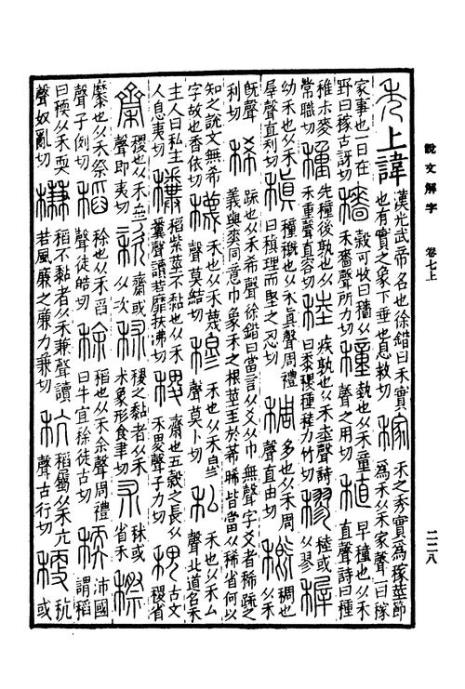 說文解字 卷七上
二二八
秀 上諱 漢光武帝名也徐鍇曰禾實也有實之象下垂也息救切 稼 禾之秀實爲稼莖節爲禾从禾家聲一曰稼
家事也一曰在野曰稼古訝切 穡 穀可收曰穡从禾嗇聲所力切 穜 埶也从禾童聲之用切 稙 早穜也从禾直聲詩曰稙
稚尗麥常職切 種 先穜後孰也从禾重聲直容切 稑 疾孰也从禾坴聲詩曰黍稷種稑力竹切 穋 稑或从翏 稺
幼禾也从禾屖聲直利切 稹 穜穊也从禾眞聲周禮曰稹理而堅之忍切 稠 多也从禾周聲直由切 穊 稠也从禾
旣聲几利切 稀 疏也从禾希聲徐鍇曰當言从爻从巾無聲字爻者稀疏之義與爽同意巾象禾之根莖至於莃晞皆當从稀省何以
知之說文無希字故也香依切 𥣫 禾也从禾蔑聲莫結切 穆 禾也从禾㣎聲莫卜切 私 禾也从禾厶聲北道名禾
主人曰私主人息夷切 𥢒 稻紫莖不黏也从禾糞聲讀若靡扶沸切 稷 齋也五穀之長从禾畟聲子力切 𥞁 古文稷省
齋 稷也从禾𠫼聲即夷切 𥞖 齋或从次 秫 稷之黏者从禾术象形食聿切 朮 秫或省禾 穄
𪎭也从禾祭聲子例切 稻 稌也从禾舀聲徒皓切 稌 稻也从禾余聲周禮曰牛宜稌徒古切 稬 沛國謂稻
曰稬从禾耎聲奴亂切 稴 稻不黏者从禾兼聲讀若風廉之廉力兼切 秔 稻屬从禾亢聲古行切 稉 秔或